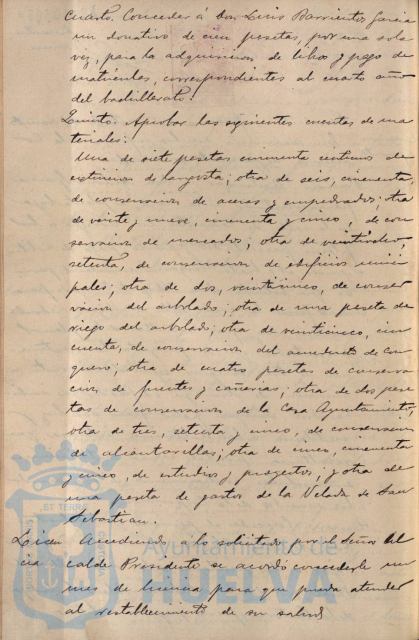 Cuarto. Conceder á don Luis Barrientos Garcia
un donativo de cien pesetas, por una sola
vez, para la adquisicion de libros y pago de
matriculas, correspondientes al cuarto año
del bachillerato.
Quinto. Aprobar las siguientes cuentas de ma
teriales:
Una de siete pesetas cincuenta centimos de
extincion de langosta; otra de seis, cincuenta,
de conservacion de aceras y empedrados; otra
de veinte y nueve, cincuenta y cinco, de con
servacion de mercados; otra de
setenta, de conservacion de edificios muni
pales; otra de dos, veinticinco, de conser
vacion del arbolado; otra de una peseta de
riego del arbolado; otra de veinticinco, cin
cuenta, de conservacion del acueducto de Con
quero; otra de cuatro pesetas de conserva
cion de fuentes y cañerias; otra de dos pese
tas de conservacion de la Casa Ayuntamiento;
otra de tres, setenta y cinco, de conservacion
de alcantarillas; otra de cinco, cincuenta
y cinco, de estudios y proyectos; y otra de
una peseta de gastos de la Velada de San
Sebastian.
Licen Accediendo a lo solicitado por el Señor Al
cia calde Presidente se acordó concederle un
mes de licencia para que pueda atender
al restablecimiento de su salud
ET TERRÆ
Ayuntamiento de
HUELVA